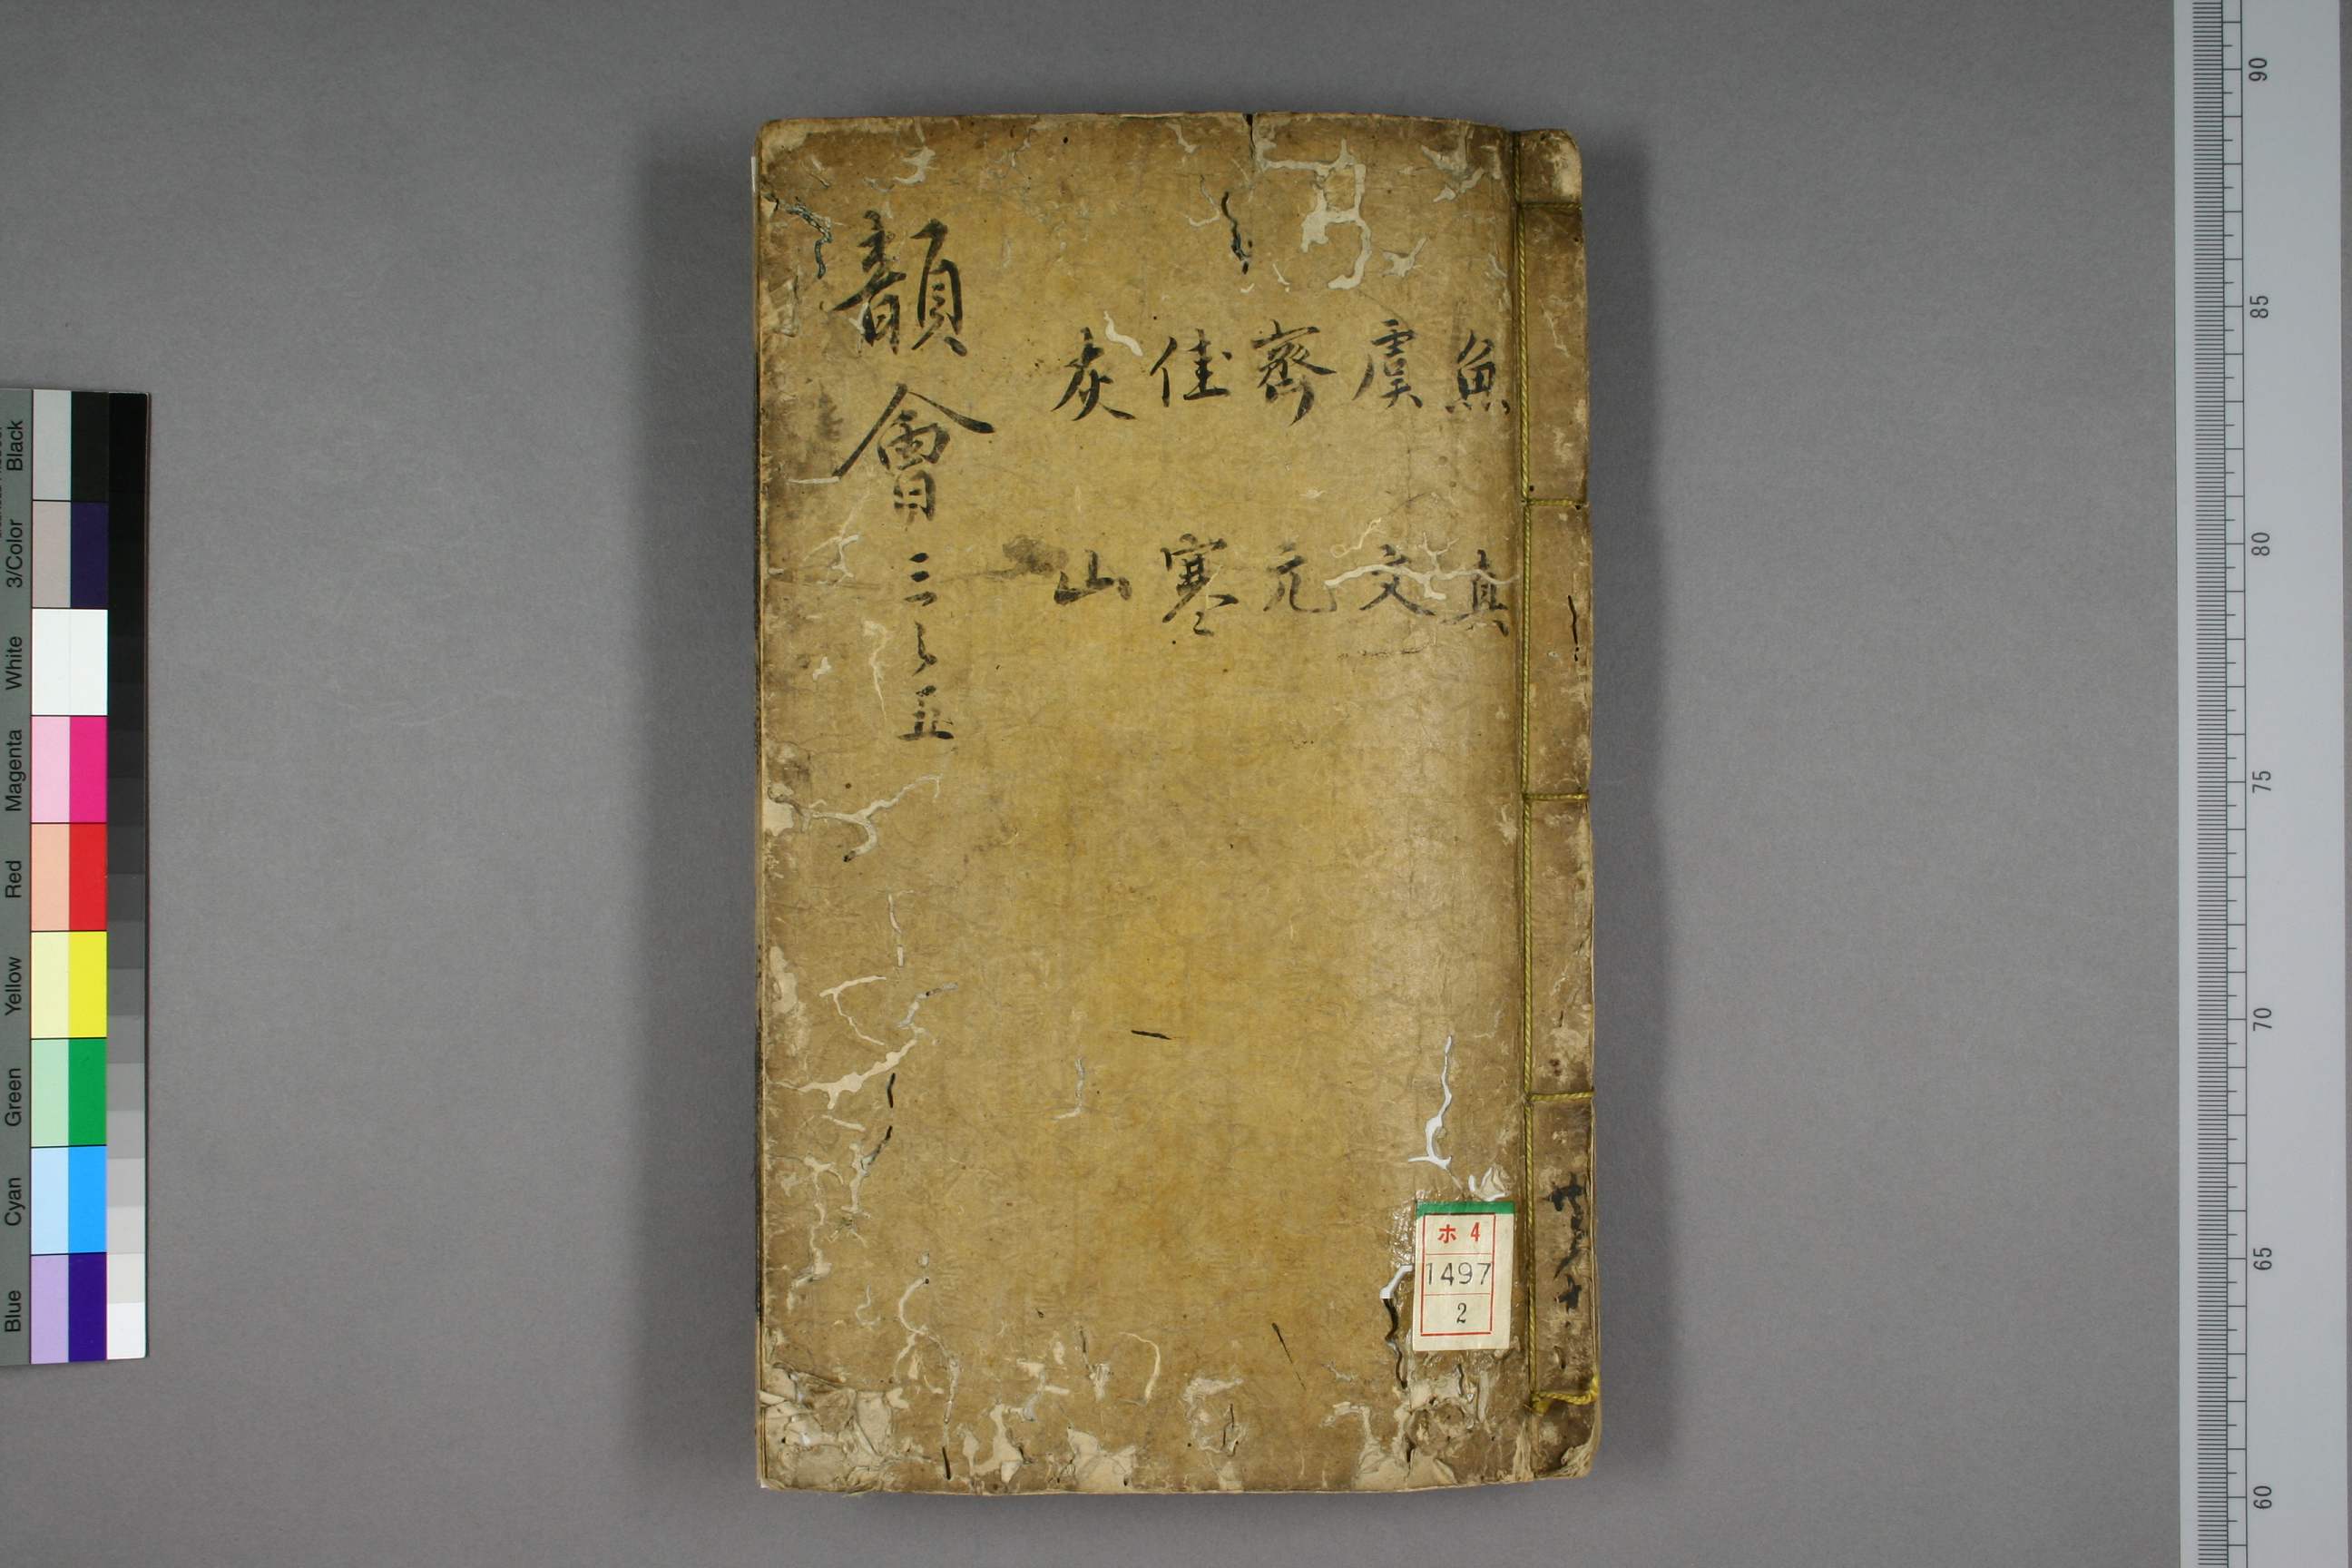 魚 虞 齊 佳 灰
真 文 元 寒 山
韻會 三之五
ホ 4
1497
2
Black
3/Color
White
Magenta
Red
Yellow
Green
Cyan
Blue
90
85
80
75
70
65
60